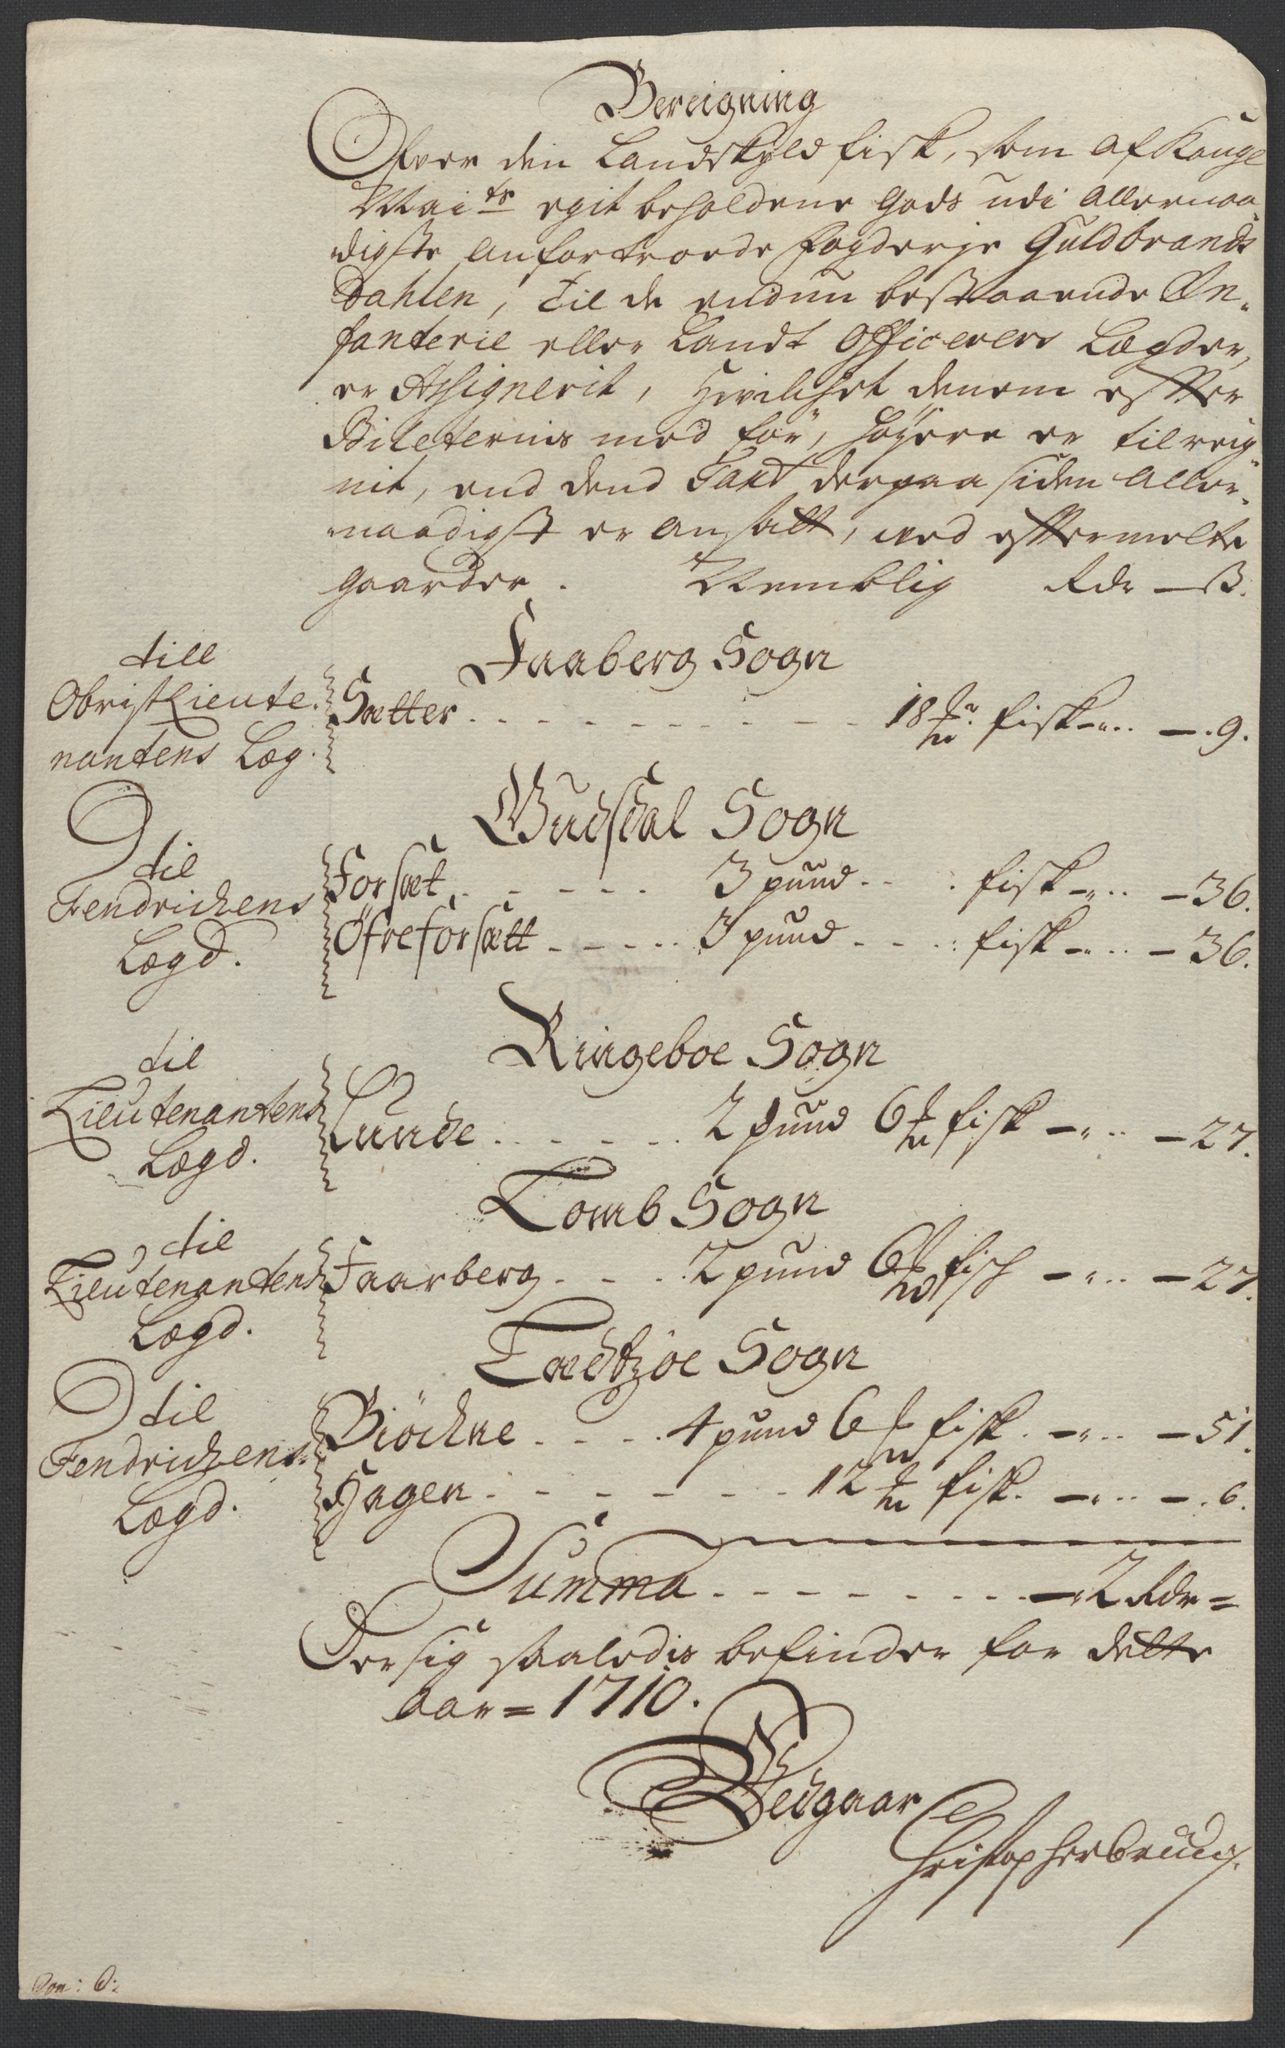 Bereigning
Ofver den Landskyld fisk, som af Kongl
Mai:ts egit beholdene Gods udi allernaa
digste anfortroede fogderje Guldbrands
Dahlen, til de endnu bestaaende In-
fanterie eller Landt Officerers Lægder,
er Assignerit, hvilchet denem efter
Bileternis med för, höyere er tilreig
nit, end dend Taxt derpaa siden aller-
naadigst er ansatt, ved eftermelte
gaarder. Nemblig Rdr — ß.
Faaberg Sogn
till
Obristlieute-
nantens Læg.
Sætter 18 fisk — 9.
Gudsdal Sogn
til
Fendrichens
Lægd.
Forsæt 3 pund fisk — 36.
Öfreforsætt 3 pund fisk — 36.
Ringeboe Sogn
til
Lieutenantens
Lægd.
Lunde 2 pund 6 fisk — 27.
Lomb Sogn
til
Lieutenantens
Lægd.
Faarberg 2 pund 6 fisch — 27.
Læsöe Sogn
til
Fendrichens
Lægd.
Biöchne 4 pund 6 fisk — 51.
Hagen 12 fisk — 6.
Summa — 2 Rdr =
Der sig saaledis befinder for dette
aar = 1710.
Vedgaar
Christopher Bruun